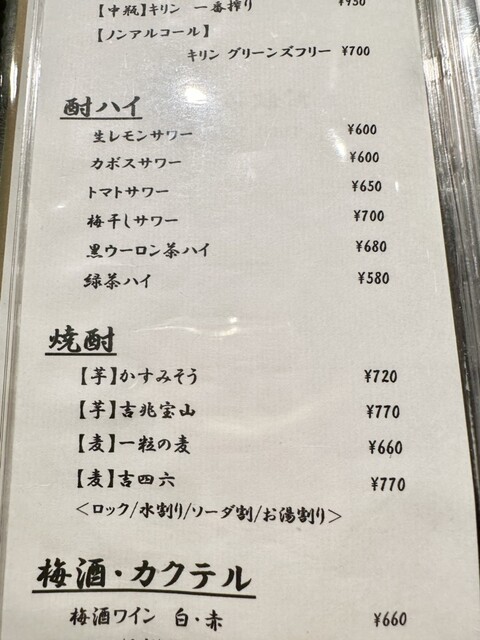 【中瓶】キリン 一番搾り ¥950
【ノンアルコール】
キリン グリーンズフリー ¥700
酎ハイ
生レモンサワー ¥600
カボスサワー ¥600
トマトサワー ¥650
梅干しサワー ¥700
黒ウーロン茶ハイ ¥680
緑茶ハイ ¥580
焼酎
【芋】かすみそう ¥720
【芋】吉兆宝山 ¥770
【麦】一粒の麦 ¥660
【麦】吉四六 ¥770
<ロック/水割り/ソーダ割/お湯割り>
梅酒・カクテル
梅酒ワイン 白・赤 ¥660